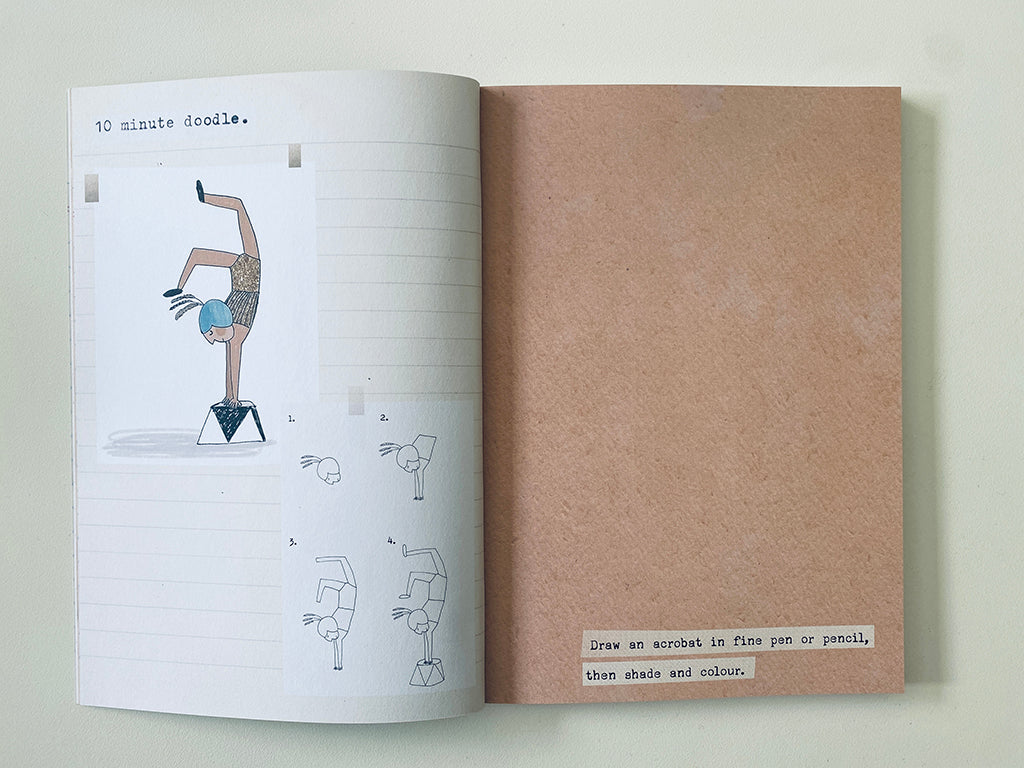 10 minute doodle.
1.
2.
3.
4.
Draw an acrobat in fine pen or pencil,
then shade and colour.